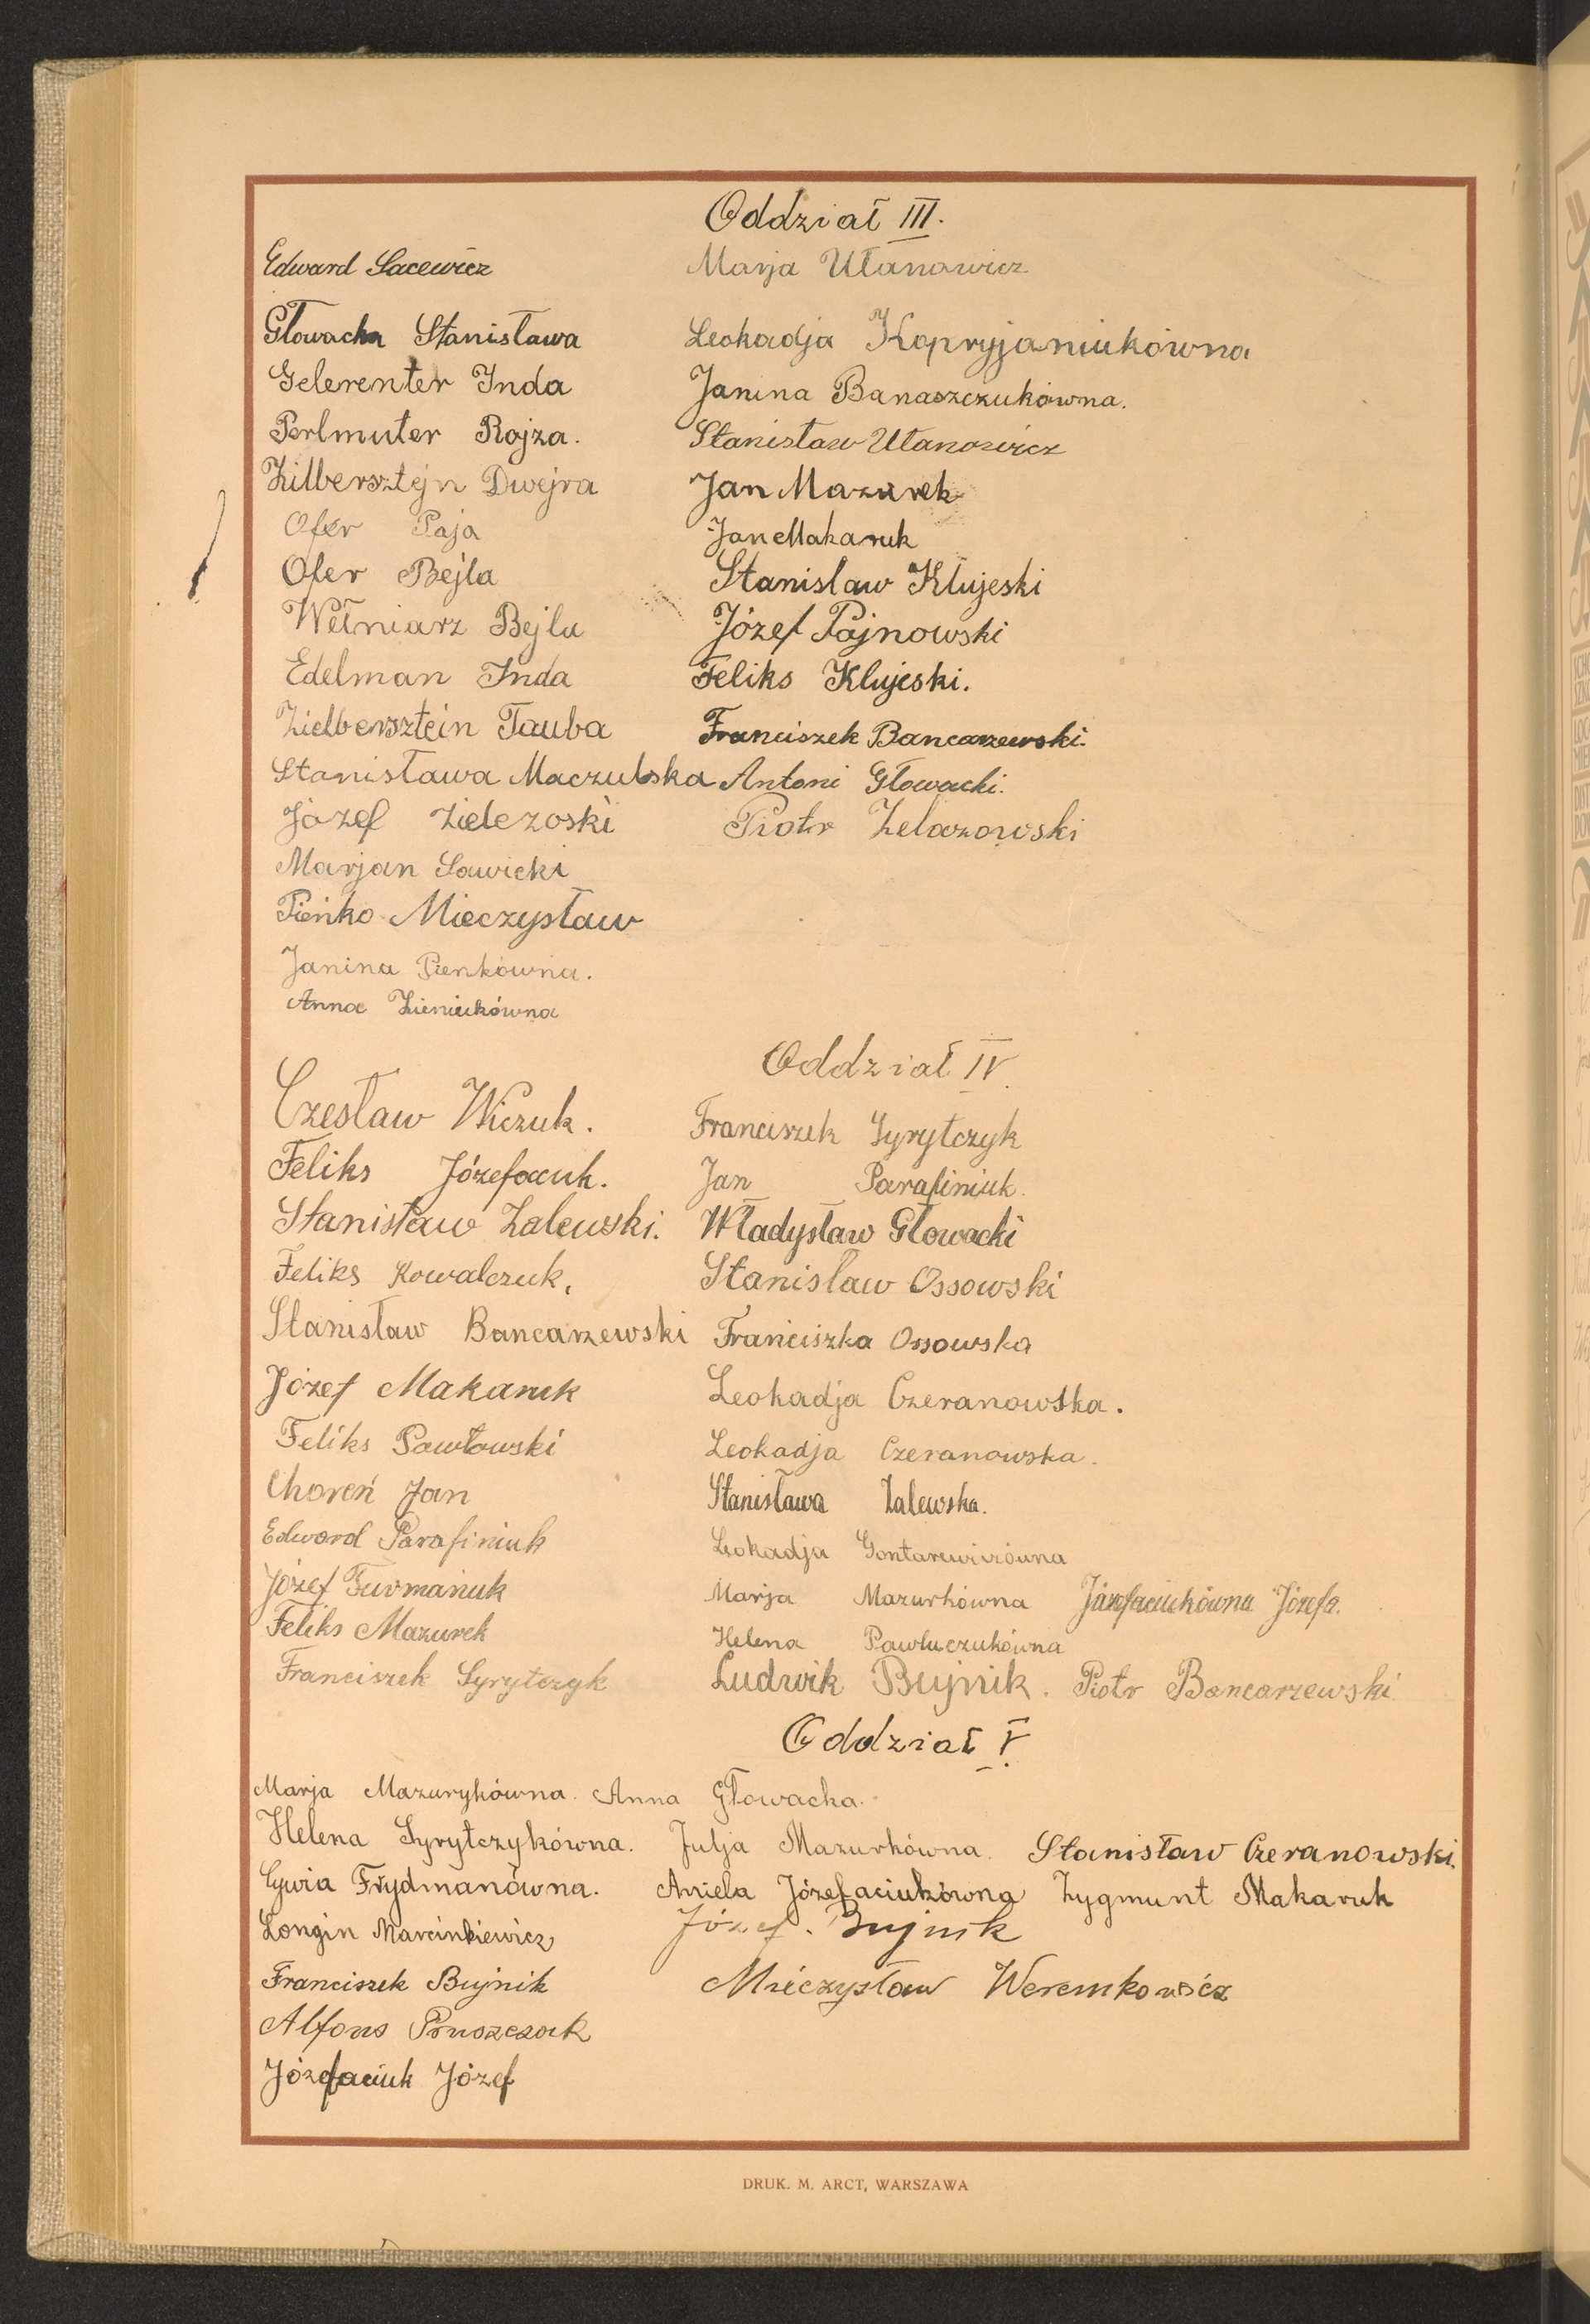 Oddział III.
Edward Sacewicz Marja Ułanowicz
Głowacka Stanisława Leokadja Kopryjaniukówna
Gelerenter Inda Janina Banaszczukówna.
Perlmuter Rojza. Stanisław Ułanowicz
Zilbersztejn Dwejra Jan Mazurek
Ofer Paja Jan Makaruk
Ofer Bejla Stanislaw Klujeski
Wełniarz Bejla Józef Pajnowski
Edelman Inda Feliks Klujeski.
Zielbersztein Tauba Franciszek Bancarzewski.
Stanisława Maczulska Antoni Głowacki.
Józef Zielezoski Piotr Zelazowski
Marjan Sawicki
Pieńko Mieczysław
Janina Pieńkówna.
Anna Zieniukówna
Oddział IV.
Czesław Wiczuk. Franciszek Syrytczyk
Feliks Józefaciuk. Jan Parafiniuk.
Stanisław Zalewski. Władysław Głowacki
Feliks Kowalczuk. Stanisław Ossowski
Stanisław Bancarzewski Franciszka Ossowska
Józef Makaruk Leokadja Czeranowska.
Feliks Pawłowski Leokadja Czeranowska.
Choreń Jan Stanisława Zalewska.
Edward Parafiniuk Leokadja Gontarewiczówna
Józef Furmaniuk Marja Mazurkówna Józefaciukówna Józefa.
Feliks Mazurek Helena Pawluczukówna
Franciszek Syrytczyk Ludwik Bujnik. Piotr Bancarzewski
Oddział V.
Marja Mazurykówna. Anna Głowacka.
Helena Syrytczykówna. Julja Mazurkówna. Stanisław Czeranowski.
Cywia Frydmanówna. Aniela Józefaciukówna Zygmunt Makaruk
Longin Marcinkiewicz Józef. Bujnik
Franciszek Bujnik Mieczysław Weremkowicz
Alfons
Józefaciuk Józef
DRUK. M. ARCT, WARSZAWA